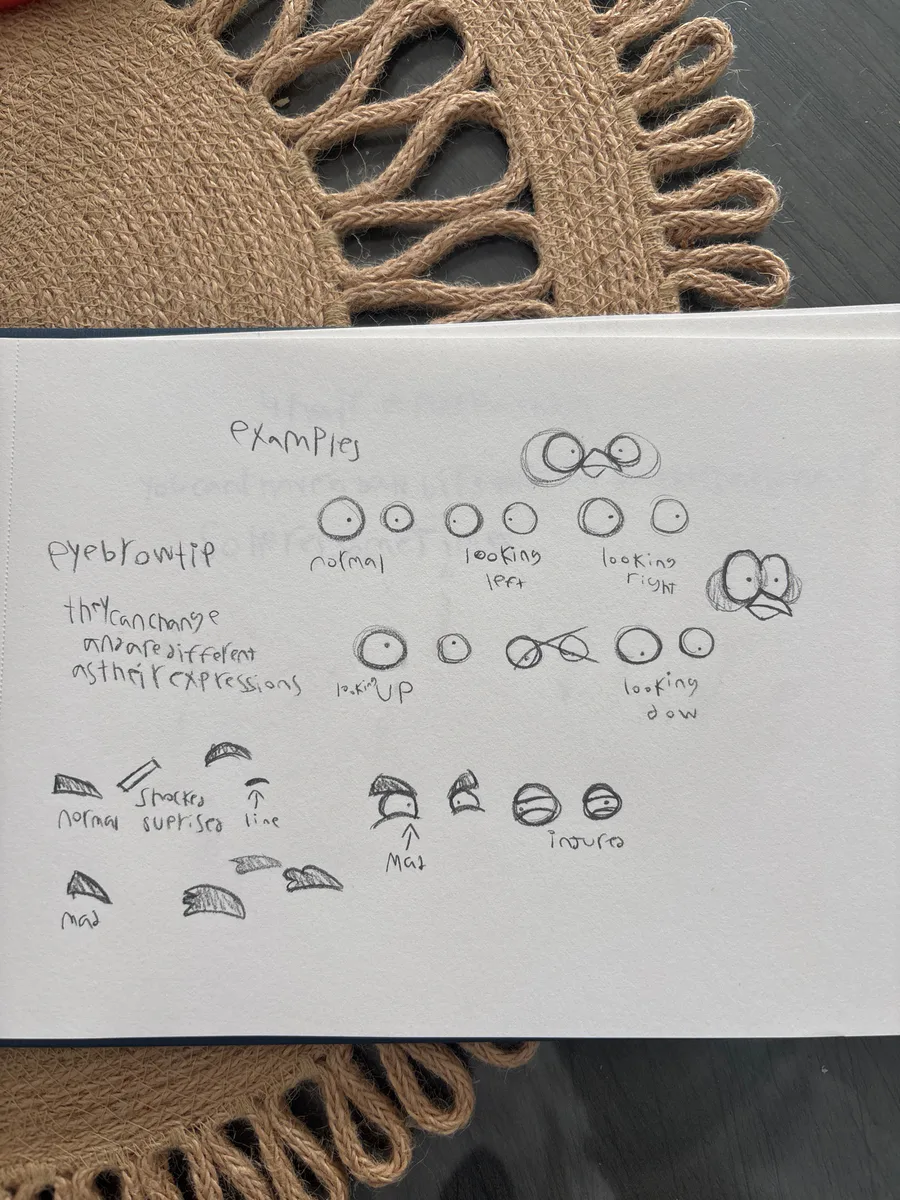 examples
normal
looking
left
looking
right
eyebrow tip
they can change
and are different
as their expressions
looking UP
looking
dow
normal
shocked
suprised
line
mad
Mad
injured